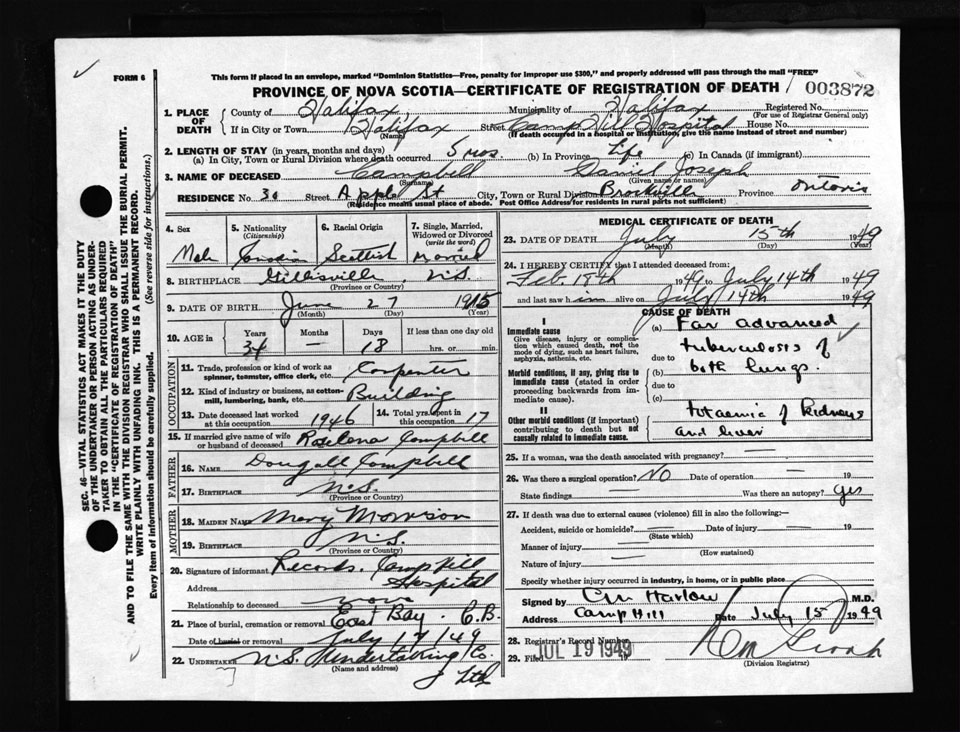 FORM 6
This form if placed in an envelope, marked "Dominion Statistics—Free, penalty for improper use $300," and properly addressed will pass through the mail "FREE"
PROVINCE OF NOVA SCOTIA—CERTIFICATE OF REGISTRATION OF DEATH
003872
1. PLACE OF DEATH County of Halifax Municipality of Halifax Registered No. (For use of Registrar General only)
If in City or Town Halifax (Name) Street Camp Hill Hospital House No.
(If death occurred in a hospital or institution, give the name instead of street and number)
2. LENGTH OF STAY (in years, months and days)
(a) In City, Town or Rural Division where death occurred 5 mos. (b) In Province Life (c) In Canada (if immigrant)
3. NAME OF DECEASED Campbell (Surname) Daniel Joseph (Given name or names)
RESIDENCE No. 30 Street Apple St City, Town or Rural Division Brockville Province Ontario
(Residence means usual place of abode. Post Office Address for residents in rural parts not sufficient)
4. Sex Male
5. Nationality (Citizenship) Canadian
6. Racial Origin Scottish
7. Single, Married, Widowed or Divorced (write the word) Married
8. BIRTHPLACE Gillisville, N.S. (Province or Country)
9. DATE OF BIRTH June (Month) 27 (Day) 1915 (Year)
10. AGE in Years 34 Months — Days 18 If less than one day old hrs. or min.
OCCUPATION
11. Trade, profession or kind of work as spinner, teamster, office clerk, etc. Carpenter
12. Kind of industry or business, as cotton-mill, lumbering, bank, etc. Building
13. Date deceased last worked at this occupation 1946 14. Total yrs. spent in this occupation 17
15. If married give name of wife or husband of deceased Campbell
FATHER
16. NAME Dougall Campbell
17. BIRTHPLACE N.S. (Province or Country)
MOTHER
18. MAIDEN NAME Mary Morrison
19. BIRTHPLACE N.S. (Province or Country)
20. Signature of informant Records. Camp Hill
Address Hospital
Relationship to deceased none
21. Place of burial, cremation or removal East Bay. C.B.
Date of burial or removal July 17/49
22. UNDERTAKER N.S. Undertaking Co. Ltd
(Name and address)
MEDICAL CERTIFICATE OF DEATH
23. DATE OF DEATH July (Month) 15th (Day) 1949 (Year)
24. I HEREBY CERTIFY that I attended deceased from:
Feb. 18th 1949 to July 14th 1949
and last saw him alive on July 14th 1949
CAUSE OF DEATH
I
Immediate cause
Give disease, injury or complication which caused death, not the mode of dying, such as heart failure, asphyxia, asthenia, etc.
Morbid conditions, if any, giving rise to immediate cause (stated in order proceeding backwards from immediate cause).
II
Other morbid conditions (if important) contributing to death but not causally related to immediate cause.
(a) Far advanced
due to tuberculosis of
(b) both lungs.
due to
(c)
of kidneys
and liver
25. If a woman, was the death associated with pregnancy? —
26. Was there a surgical operation? NO Date of operation — 19
State findings — Was there an autopsy? yes
27. If death was due to external causes (violence) fill in also the following:—
Accident, suicide or homicide? — (State which) Date of injury — 19
Manner of injury — (How sustained)
Nature of injury —
Specify whether injury occurred in industry, in home, or in public place
Signed by CM Harlow M.D.
Address Camp Hill Date July 15 1949
28. Registrar's Record Number
29. Filed JUL 19 1949
(Division Registrar)
SEC. 46—VITAL STATISTICS ACT MAKES IT THE DUTY
OF THE UNDERTAKER OR PERSON ACTING AS UNDER-
TAKER TO OBTAIN ALL THE PARTICULARS REQUIRED
IN THE "CERTIFICATE OF REGISTRATION OF DEATH"
AND TO FILE THE SAME WITH THE DIVISION REGISTRAR WHO SHALL ISSUE THE BURIAL PERMIT.
WRITE PLAINLY WITH UNFADING INK. THIS IS A PERMANENT RECORD.
Every item of information should be carefully supplied. (See reverse side for instructions.)